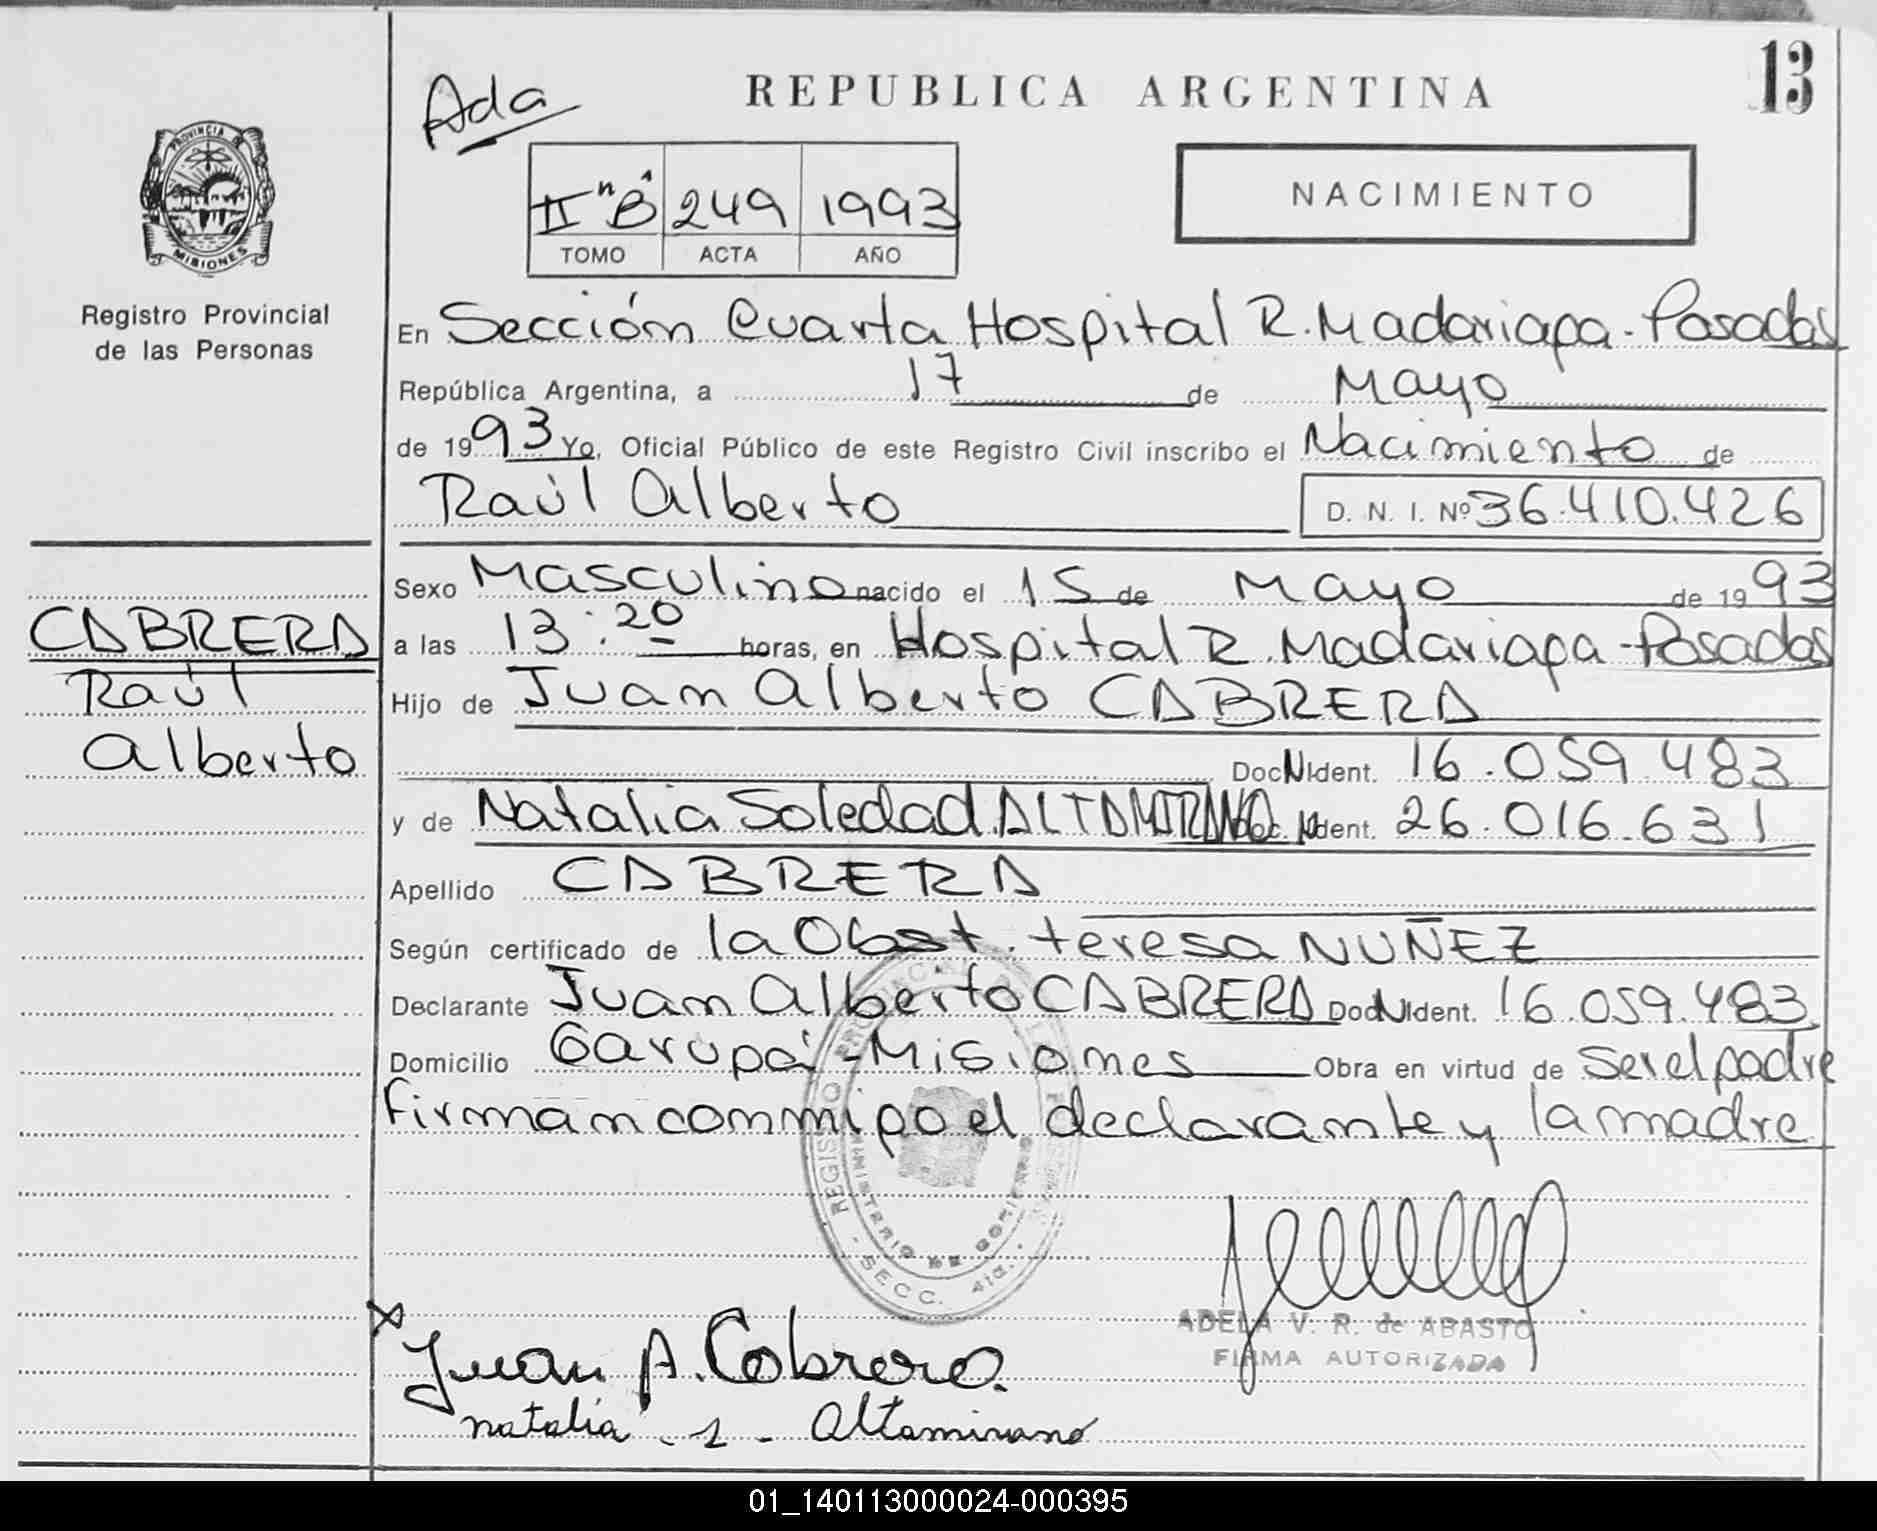 13
Ada
REPUBLICA ARGENTINA
PROVINCIA DE
MISIONES
Registro Provincial
de las Personas
II "B" 249 1993
TOMO ACTA AÑO
NACIMIENTO
En Sección Cuarta Hospital R. Madariaga - Posadas
República Argentina, a 17 de Mayo
de 1993 Yo, Oficial Público de este Registro Civil inscribo el Nacimiento de
Raúl Alberto D. N. I. Nº 36.410.426
Sexo Masculino nacido el 15 de Mayo de 1993
a las 13:20 horas, en Hospital R. Madariaga - Posadas
Hijo de Juan Alberto CABRERA
Doc N Ident. 16.059.483
y de Natalia Soledad ALTAMIRANO Doc. N Ident. 26.016.631
Apellido CABRERA
Según certificado de la Obst. teresa NUÑEZ
Declarante Juan Alberto CABRERA Doc N Ident. 16.059.483
Domicilio Garupá - Misiones Obra en virtud de ser el padre
firman conmigo el declarante y la madre
CABRERA
Raúl
Alberto
REGISTRO PROVINCIAL DE LAS PERSONAS
MINISTERIO DE GOBIERNO
- SECC. 4ta. -
ADELA V. R. de ABASTO
FIRMA AUTORIZADA
x Juan A. Cabrera.
natalia - s - Altamirano
01_140113000024-000395